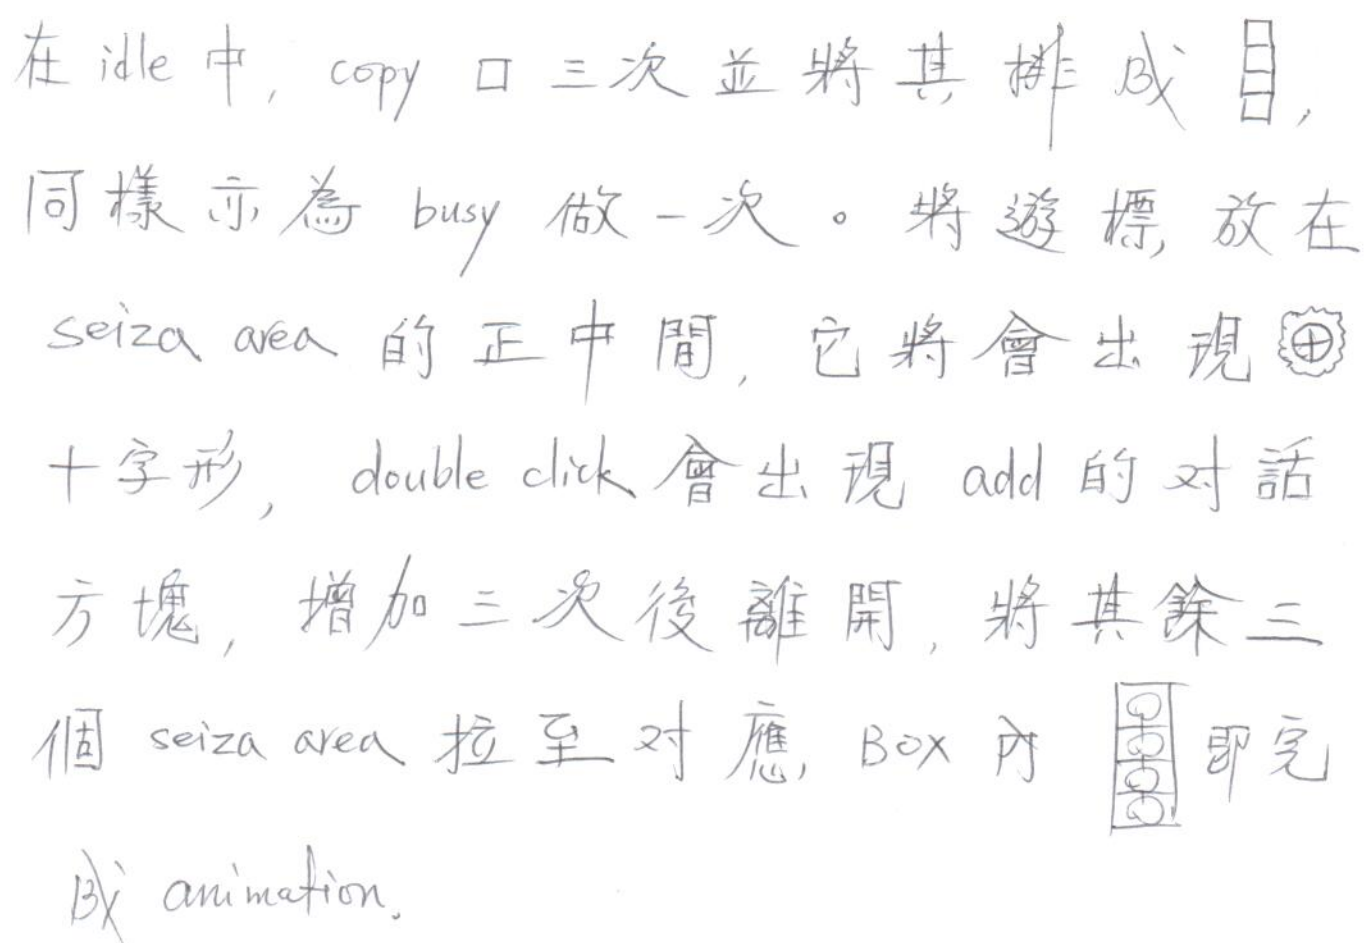 在 idle 中, copy 口 三次並將其排成,
同樣亦為 busy 做一次。將遊標放在
seiza area 的正中間, 它將會出現
十字形, double click 會出現 add 的对話
方塊, 增加三次後離開, 將其餘三
個 seiza area 拉至对應 Box 內 即完
成 animation.